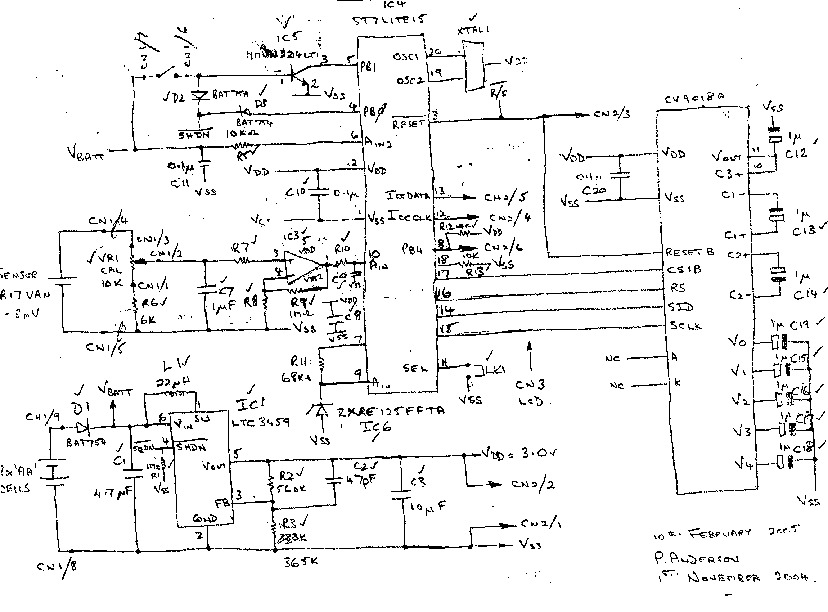 IC4
ST7LITE15
IC5
3
5
PB1
2
VSS
OSC1
20
OSC2
19
XTAL1
R/S
RESET
CN2/3
D2
BAT754
D5
BAT754
4
PB0
SHDN
10K
6
AIN2
VBATT
0.1µ
C11
VSS
VDD
2
VDD
C10
0.1µ
1
VSS
ICCDATA
13
CN2/5
ICCCLK
12
CN2/4
VDD
PB4
8
CN2/6
18
10K
VSS
17
16
14
15
CV9018A
VSS
1µ
C12
VDD
VDD
VOUT
11
10
C3+
0.1µ
C20
VSS
VSS
C1-
1µ
C13
C1+
C2+
RESETB
CS1B
1µ
C14
C2-
RS
SID
SCLK
V0
1µ
C19
NC
A
V1
1µ
C15
NC
K
V2
1µ
C16
V3
1µ
C17
V4
1µ
C18
VSS
CN1/4
CN1/3
CN1/2
VR1
CAL
10K
CN1/1
R6
6K
SENSOR
CN1/5
R7
C7
1µF
IC3
VDD
3
4
R8
R9
R10
AIN
VSS
C8
VDD
VSS
7
R11
68K
9
AIN
SEL
LK1
VSS
CN3
LCD
ZXRE125FFTA
IC6
VSS
L1
22µH
VBATT
CN1/9
D1
BAT754
6
VIN
SW
1
IC1
LTC3459
SHDN
4
SHDN
R1
VSS
C1
4.7µF
VOUT
5
FB
3
GND
2
R2
560K
C2
47pF
C3
10µF
VDD = 3.0V
CN2/2
R3
383K
365K
CN2/1
VSS
2x'AA'
CELLS
CN1/8
10th FEBRUARY 2005
P. ANDERSON
1ST NOVEMBER 2004.